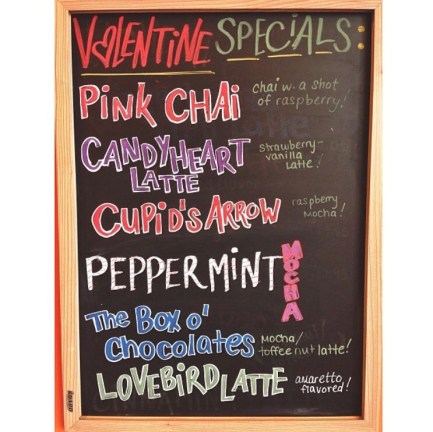 VALENTINE SPECIALS:
PINK CHAI
chai w. a shot
of raspberry!
CANDYHEART
LATTE
strawberry-
vanilla
latte!
CUPID'S ARROW
raspberry
mocha!
PEPPERMINT
MOCHA
The Box o'
Chocolates
mocha/
toffee nut latte!
LOVEBIRD LATTE
amaretto
flavored!